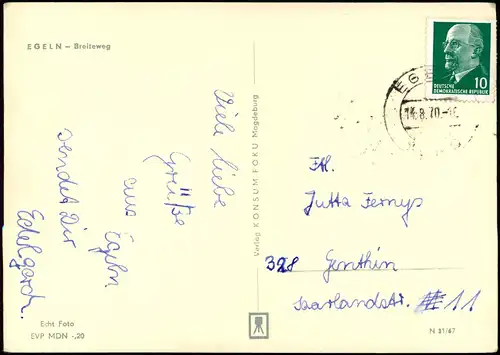 EGELN – Breiteweg
Viele liebe
Grüße
aus Egeln
sendet Dir
Edelgard.
Echt Foto
EVP MDN -,20
Verlag KONSUM FOKU Magdeburg
10
DEUTSCHE
DEMOKRATISCHE REPUBLIK
14.8.70.-
Jutta Fernys
328 Genthin
Saarlandstr. 11
N 31/67